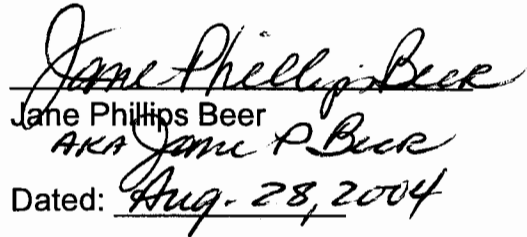 Jane Phillips Beer
Jane Phillips Beer
AKA Jane P Beer
Dated: Aug. 28, 2004